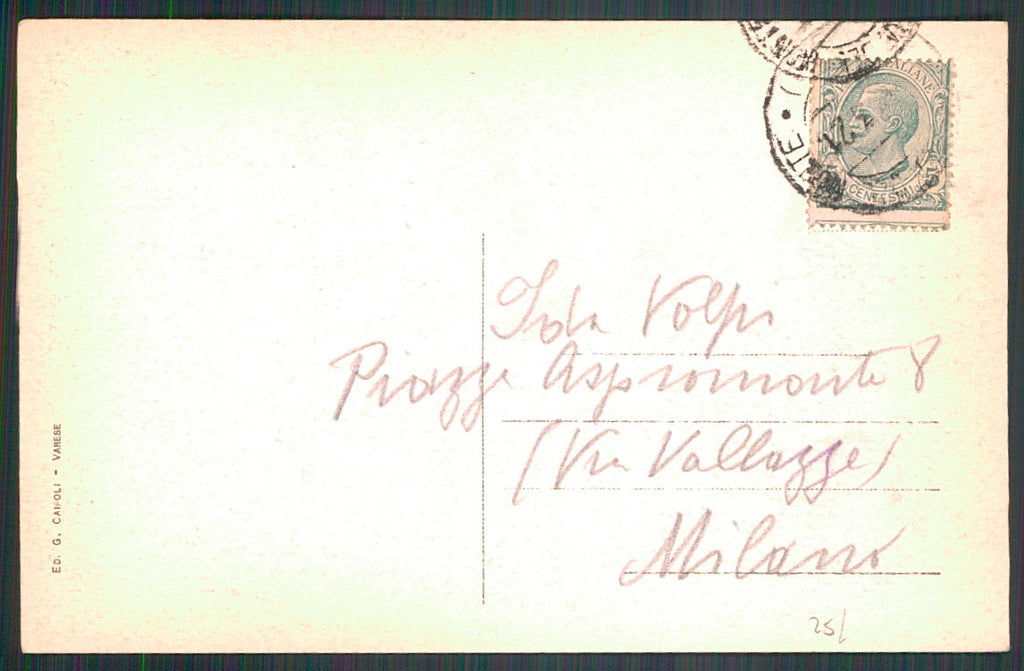 ALIANE
CENTESIMI
Ida Volpi
Piazza Aspromonte 8
(Via Vallazze)
Milano
ED. G. CAIROLI - VARESE
25/